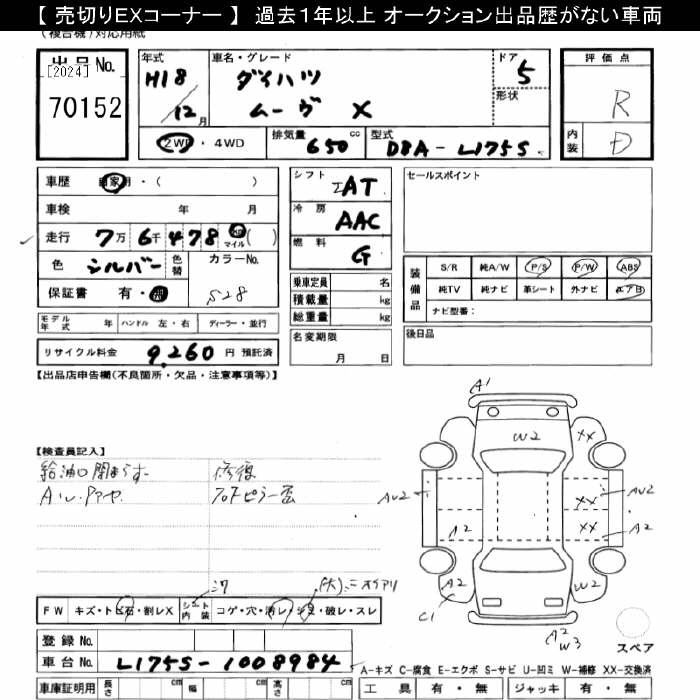 【 売切りEXコーナー 】 過去１年以上 オークション出品歴がない車両
(複合機)対応用紙
出品No.
[2024]
70152
年式 H18/12月
車名・グレード ダイハツ ムーヴ X
ドア 5
形状
2WD・4WD
排気量 650 cc
型式 DBA-L175S
評価点 R
内装 D
車歴 自家用・( )
車検 年 月
走行 7万6千478 km マイル ( )
色 シルバー 色替
カラーNo. S28
保証書 有・無
モデル年式 年 ハンドル 左・右 ディーラー・並行
リサイクル料金 9,260 円 預託済
シフト IAT
冷房 AAC
燃料 G
乗車定員 名
積載量 kg
総重量 kg
名変期限 月 日
セールスポイント
装備品
S/R 純A/W P/S P/W ABS
純TV 純ナビ 革シート 外ナビ エアB
ナビ型番:
後日品
【出品店申告欄(不良箇所・欠品・注意事項等)】
【検査員記入】
給油口開まらず 修復
フロントピラー歪
A1
W2
XX
AU2
XX
AU2
A2
XX
A2
A2
W2
C1
A2
W3
スペア
FW キズ・トビ石・割レX
シート内装 コゲ・穴・汚レ・シミ・破レ・スレ
(大)ニオイアリ
登録No.
車台No. L175S-1008984
A-キズ C-腐食 E-エクボ S-サビ U-凹ミ W-補修 XX-交換済
車庫証明用 長さ cm 幅 cm 高さ cm
工具 有・無 ジャッキ 有・無